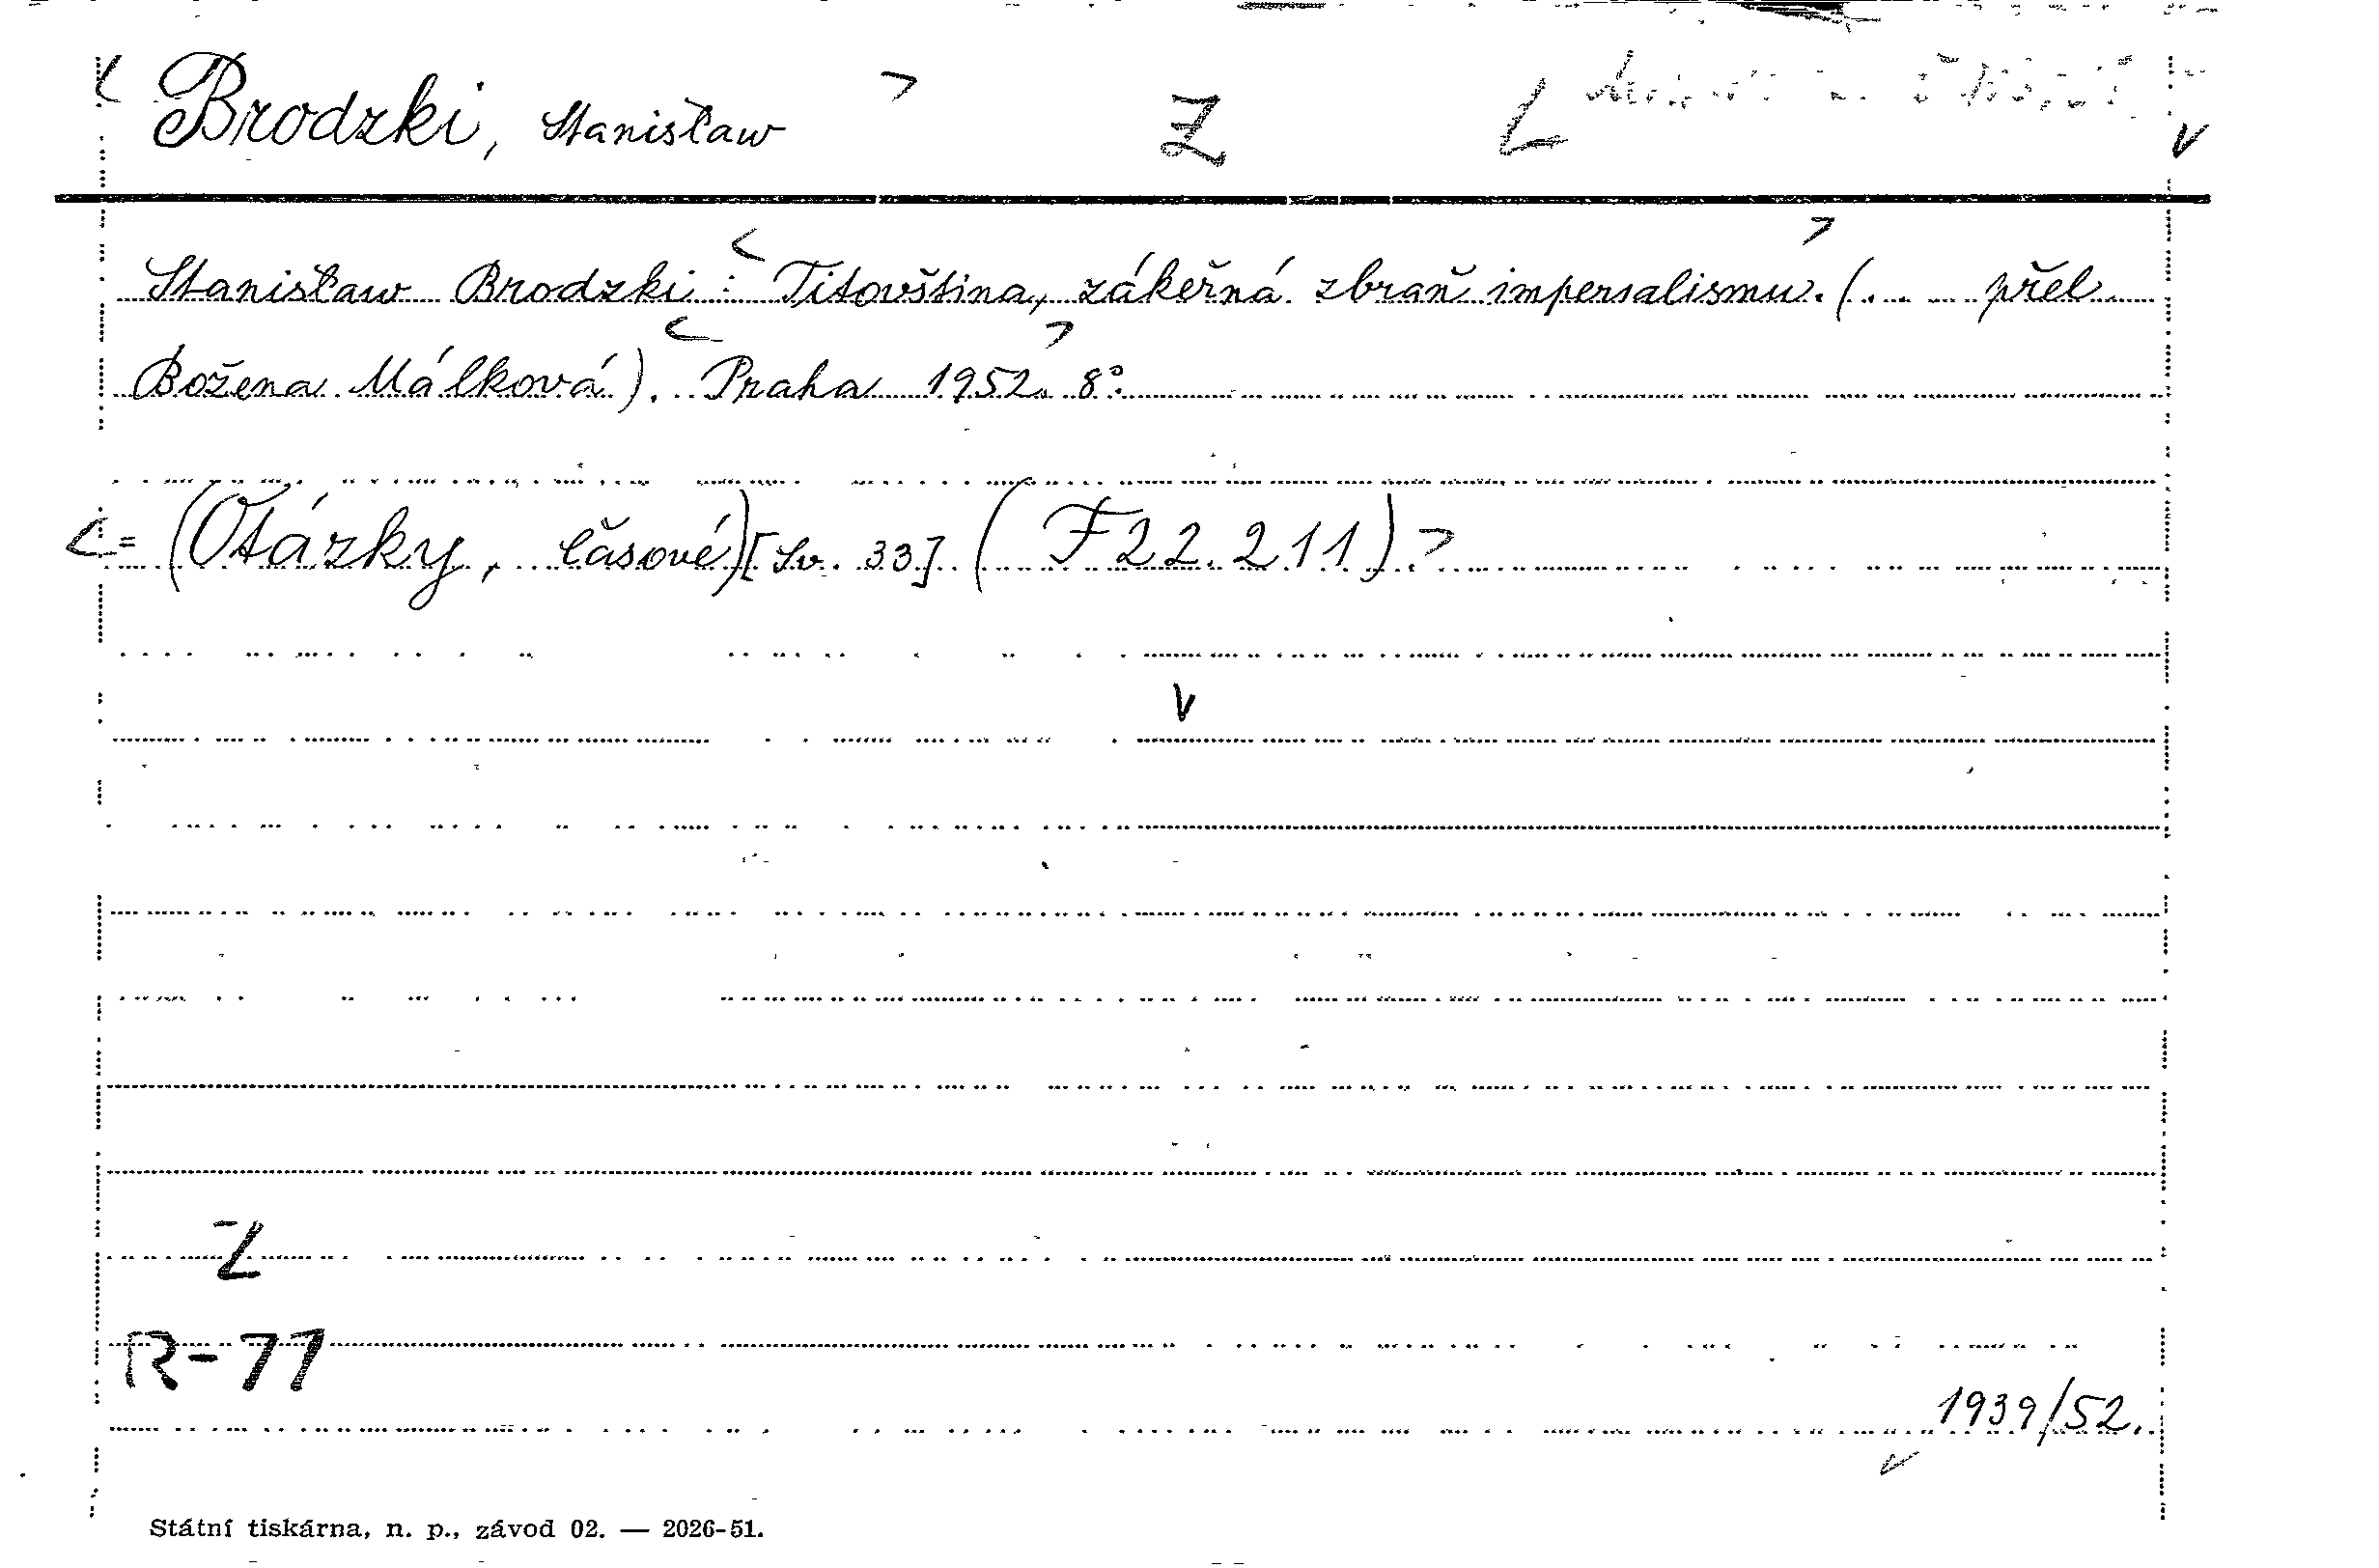 < Brodzki, Stanisław > Z L
Stanisław Brodzki : < Titovština, zákeřná zbraň imperialismu. > (... přel.
Božena Málková). < Praha 1952. > 8°.
< = (Otázky, časové) [Sv. 33] ( F 22.211). >
Z
R-71
1939/52.
Státní tiskárna, n. p., závod 02. — 2026-51.